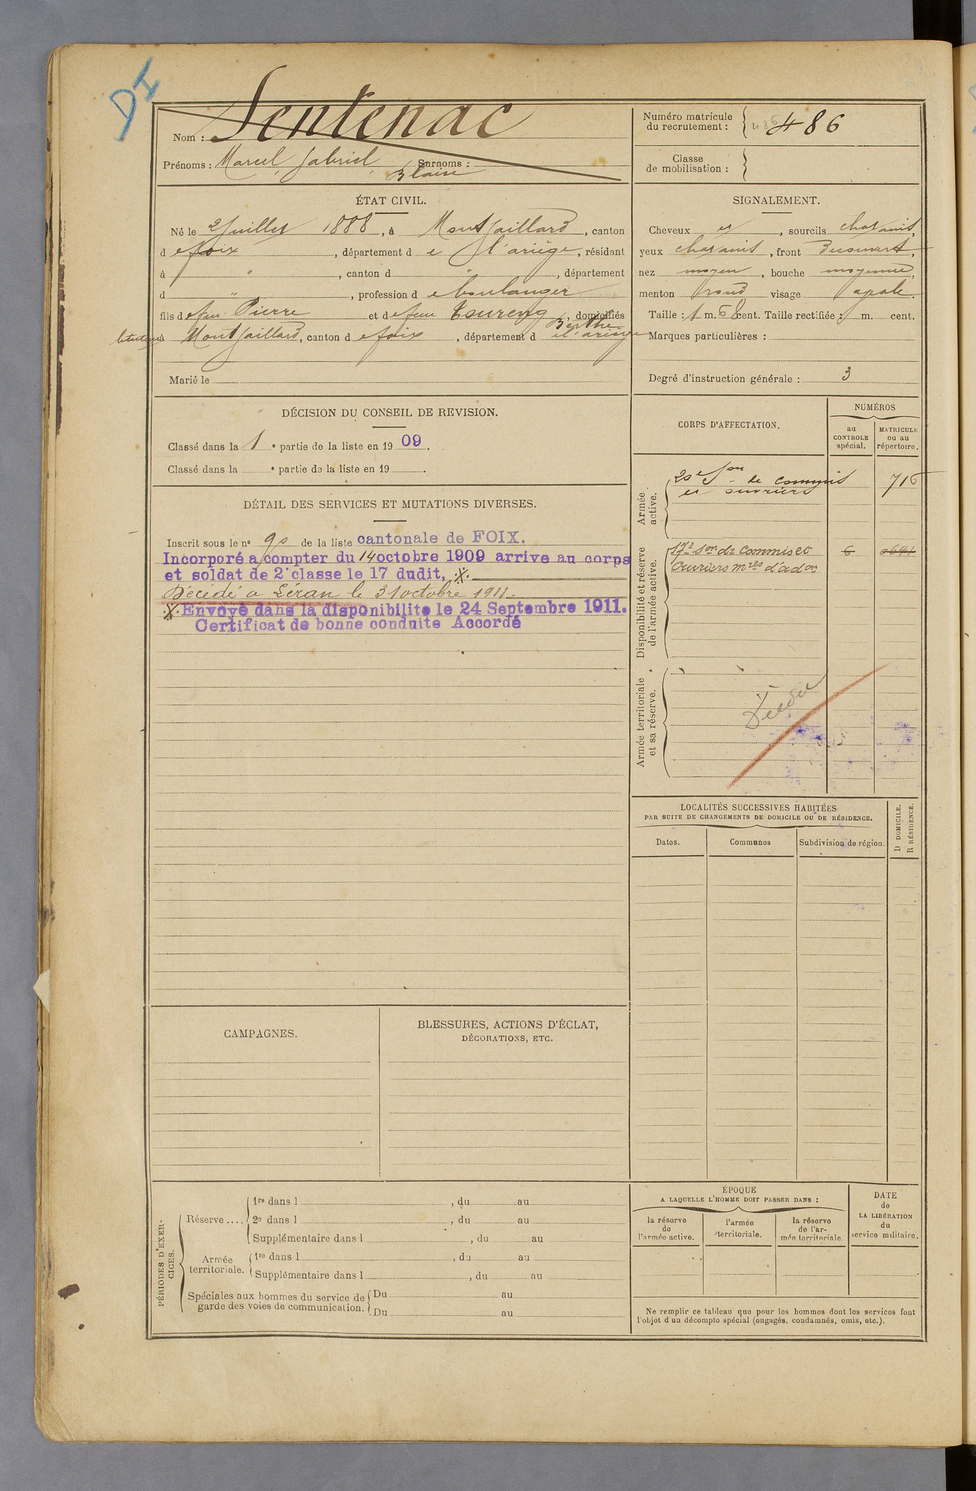 DI
Nom : Sentenac
Prénoms : Marcel Gabriel Surnoms :
Blaise
Numéro matricule
du recrutement : 486
Classe
de mobilisation :
ÉTAT CIVIL.
Né le 2 Juillet 1888, à Montgaillard, canton
de foix, département de l'ariège, résidant
à ", canton d ", département
d ", profession de boulanger
fils de feu Pierre et de feue Toureng, domiciliés
Berthe
Montgaillard, canton de foix, département d el'ariège
Marié le
SIGNALEMENT.
Cheveux et, sourcils chatains,
yeux chatains, front
nez moyen, bouche moyenne,
menton rond visage ovale.
Taille : 1 m. cent. Taille rectifiée : m. cent.
Marques particulières :
Degré d'instruction générale : 3
DÉCISION DU CONSEIL DE REVISION.
Classé dans la 1 e partie de la liste en 1909.
Classé dans la e partie de la liste en 19 .
DÉTAIL DES SERVICES ET MUTATIONS DIVERSES.
Inscrit sous le n° 90 de la liste cantonale de FOIX.
Incorporé a compter du 14 octobre 1909 arrive au corps
et soldat de 2e classe le 17 dudit, .X.
Décédé a Léran le 31 octobre 1911.
.X. Envoyé dans la disponibilite le 24 Septembre 1911.
Certificat de bonne conduite Accordé
CORPS D'AFFECTATION.
NUMÉROS
au
CONTROLE
spécial.
MATRICULE
ou au
répertoire.
Armée
active.
20e Son de Commis
et ouvriers
716
Disponibilité et réserve
de l'armée active.
17e Son de Commis et
Ouvriers mres d'adon
6
Armée territoriale
et sa réserve.
Décédé
LOCALITÉS SUCCESSIVES HABITÉES
PAR SUITE DE CHANGEMENTS DE DOMICILE OU DE RÉSIDENCE.
Dates.
Communes
Subdivision de région.
D DOMICILE.
R RÉSIDENCE.
CAMPAGNES.
BLESSURES, ACTIONS D'ÉCLAT,
DÉCORATIONS, ETC.
PÉRIODES D'EXER-
CICES.
Réserve ....
1re dans l , du au
2e dans l , du au
Supplémentaire dans l , du au
Armée
territoriale.
1re dans l , du au
Supplémentaire dans l , du au
Spéciales aux hommes du service de
garde des voies de communication.
Du au
Du au
ÉPOQUE
A LAQUELLE L'HOMME DOIT PASSER DANS :
la réserve
de
l'armée active.
l'armée
territoriale.
la réserve
de l'ar-
mée territoriale.
DATE
de
LA LIBÉRATION
du
service militaire.
Ne remplir ce tableau que pour les hommes dont les services font
l'objet d'un décompte spécial (engagés, condamnés, omis, etc.).